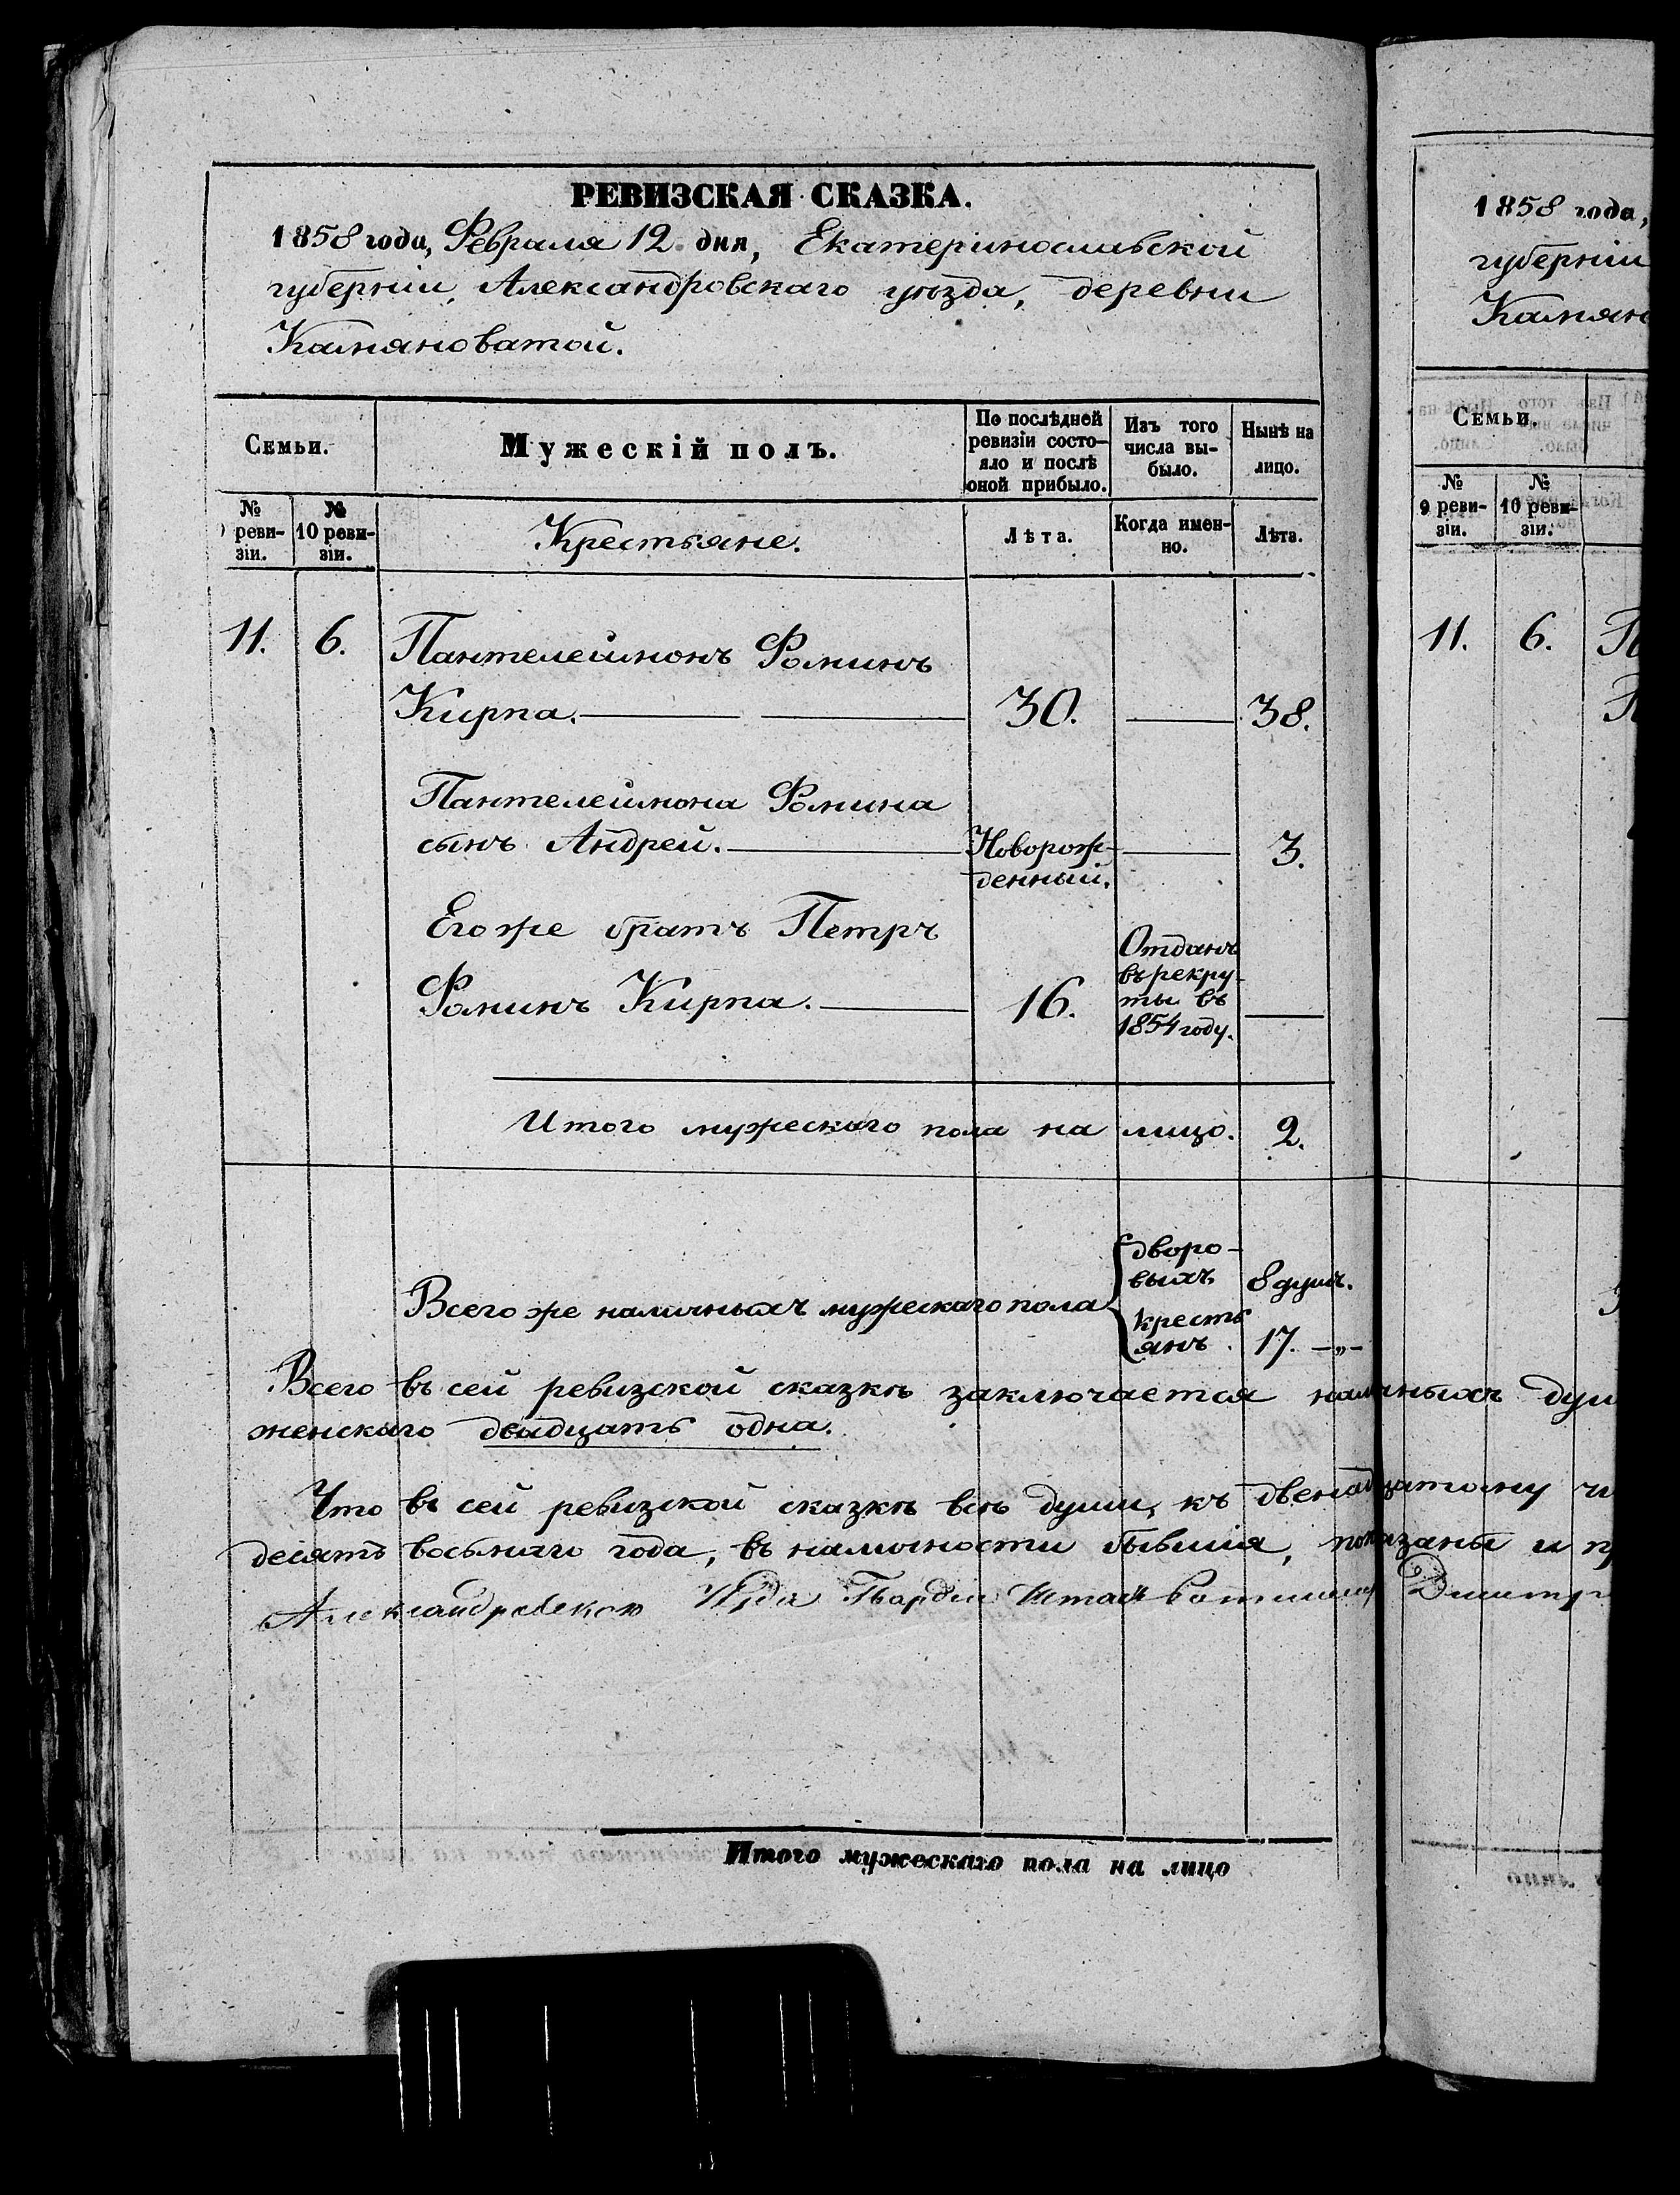 РЕВИЗСКАЯ СКАЗКА.
1858 года, Февраля 12 дня, Екатеринославской
губерніи, Александровскаго уѣзда, деревни
Камяноватой.
Семьи.
Мужескій полъ.
По послѣдней
ревизіи состо-
яло и послѣ
оной прибыло.
Изъ того
числа вы-
было.
Нынѣ на
лицо.
№
реви-
зіи.
№
10 реви-
зіи.
Крестьяне.
Лѣта.
Когда имен-
но.
Лѣта.
11. 6. Пантелеймонъ Фоминъ
Кирпа. 30. 38.
Пантелеймона Фомина
сынъ Андрей. Новорож- 3.
денный.
Его же братъ Петръ
Фоминъ Кирпа. 16.
Отданъ
въ рекру-
ты въ
1854 году.
Итого мужескаго пола на лицо. 2.
Всего же наличныхъ мужескаго пола
дворо-
выхъ 8 душъ.
кресть
янъ. 17. —„—
Всего въ сей ревизской сказкѣ заключается наличныхъ душ
женскаго двадцать одна.
Что въ сей ревизской сказкѣ всѣ души, къ двенадцатому чи
десятъ восьмаго года, въ наличности бывшія, показаны и пр
Гвардіи Штабъ Дмитр
Итого мужескаго пола на лицо
1858 года,
губерніи
Камян
Семьи.
№
9 реви-
зіи.
№
10 реви-
зіи.
11. 6. П